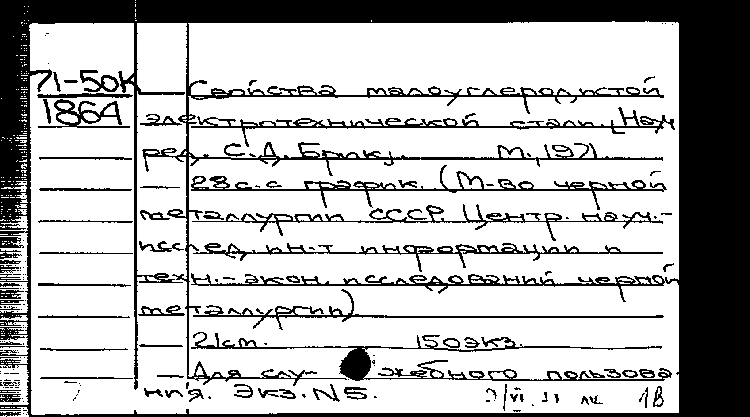 71-50к
1864
Свойства малоуглеродистой
электротехнической стали. [Науч
ред. С.Д. Брик]. М., 1971.
28 с. с график. (М-во черной
металлургии СССР. Центр. науч.-
исслед. ин-т информации и
техн.-экон. исследований черной
металлургии)
21см. 150экз.
Для слу- жебного пользова-
ния. Экз. №5.
1В